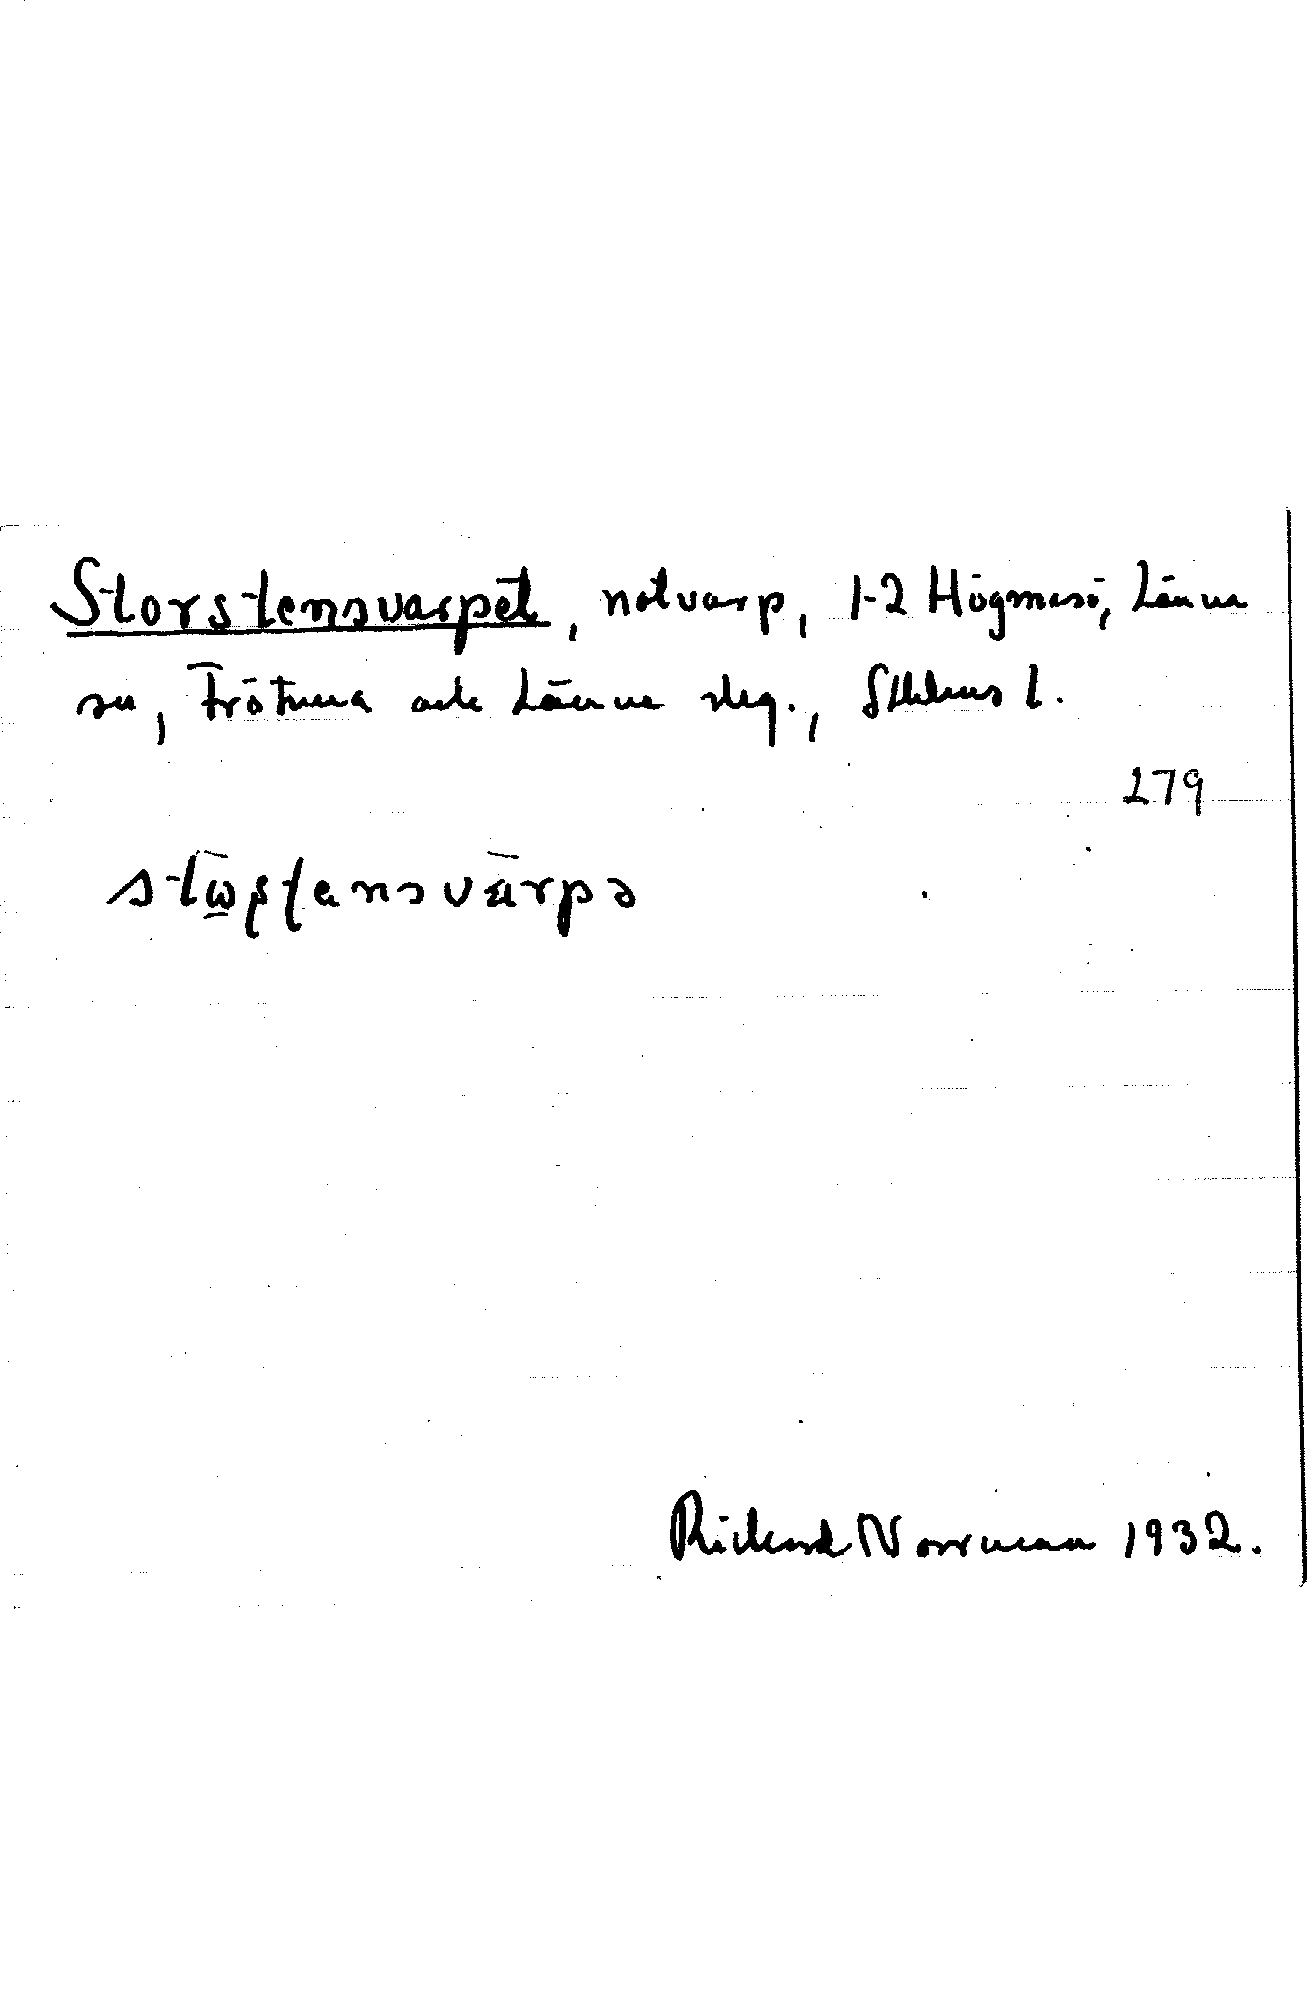 Storstensvarpet, notvarp, 1-2 Högmarsö, Länna
sn, Frötuna och Länna slg., Sthlms l.
279
Rickard Norrman 1932.